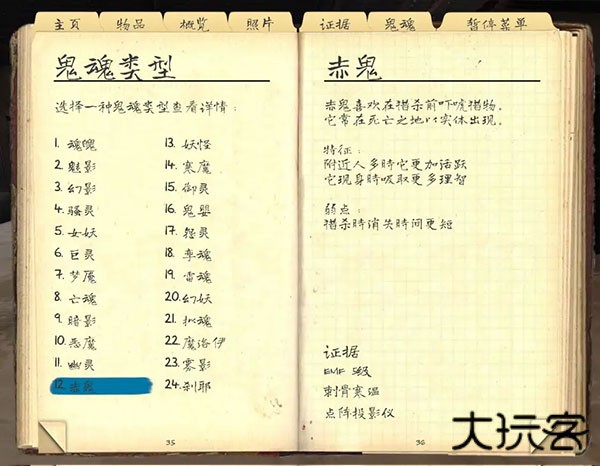 主页 物品 概览 照片 证据 鬼魂 暂停菜单
鬼魂类型
选择一种鬼魂类型查看详情:
1. 魂魄
2. 魅影
3. 幻影
4. 骚灵
5. 女妖
6. 巨灵
7. 梦魇
8. 亡魂
9. 暗影
10. 恶魔
11. 幽灵
12. 赤鬼
13. 妖怪
14. 寒魔
15. 御灵
16. 鬼婴
17. 怨灵
18. 孪魂
19. 雷魂
20. 幻妖
21. 拟魂
22. 魔洛伊
23. 雾影
24. 刹耶
35
赤鬼
赤鬼喜欢在猎杀前吓唬猎物。
它常在死亡之地以实体出现。
特征:
附近人多时它更加活跃
它现身时吸取更多理智
弱点:
猎杀时消失时间更短
证据
EMF 5级
刺骨寒温
点阵投影仪
36
大玩客